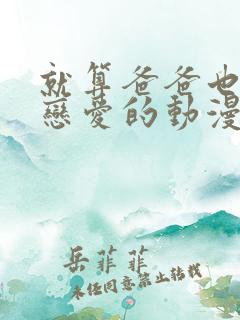 就算爸爸也
戀愛的動漫
岳菲菲
未经同意禁止转载